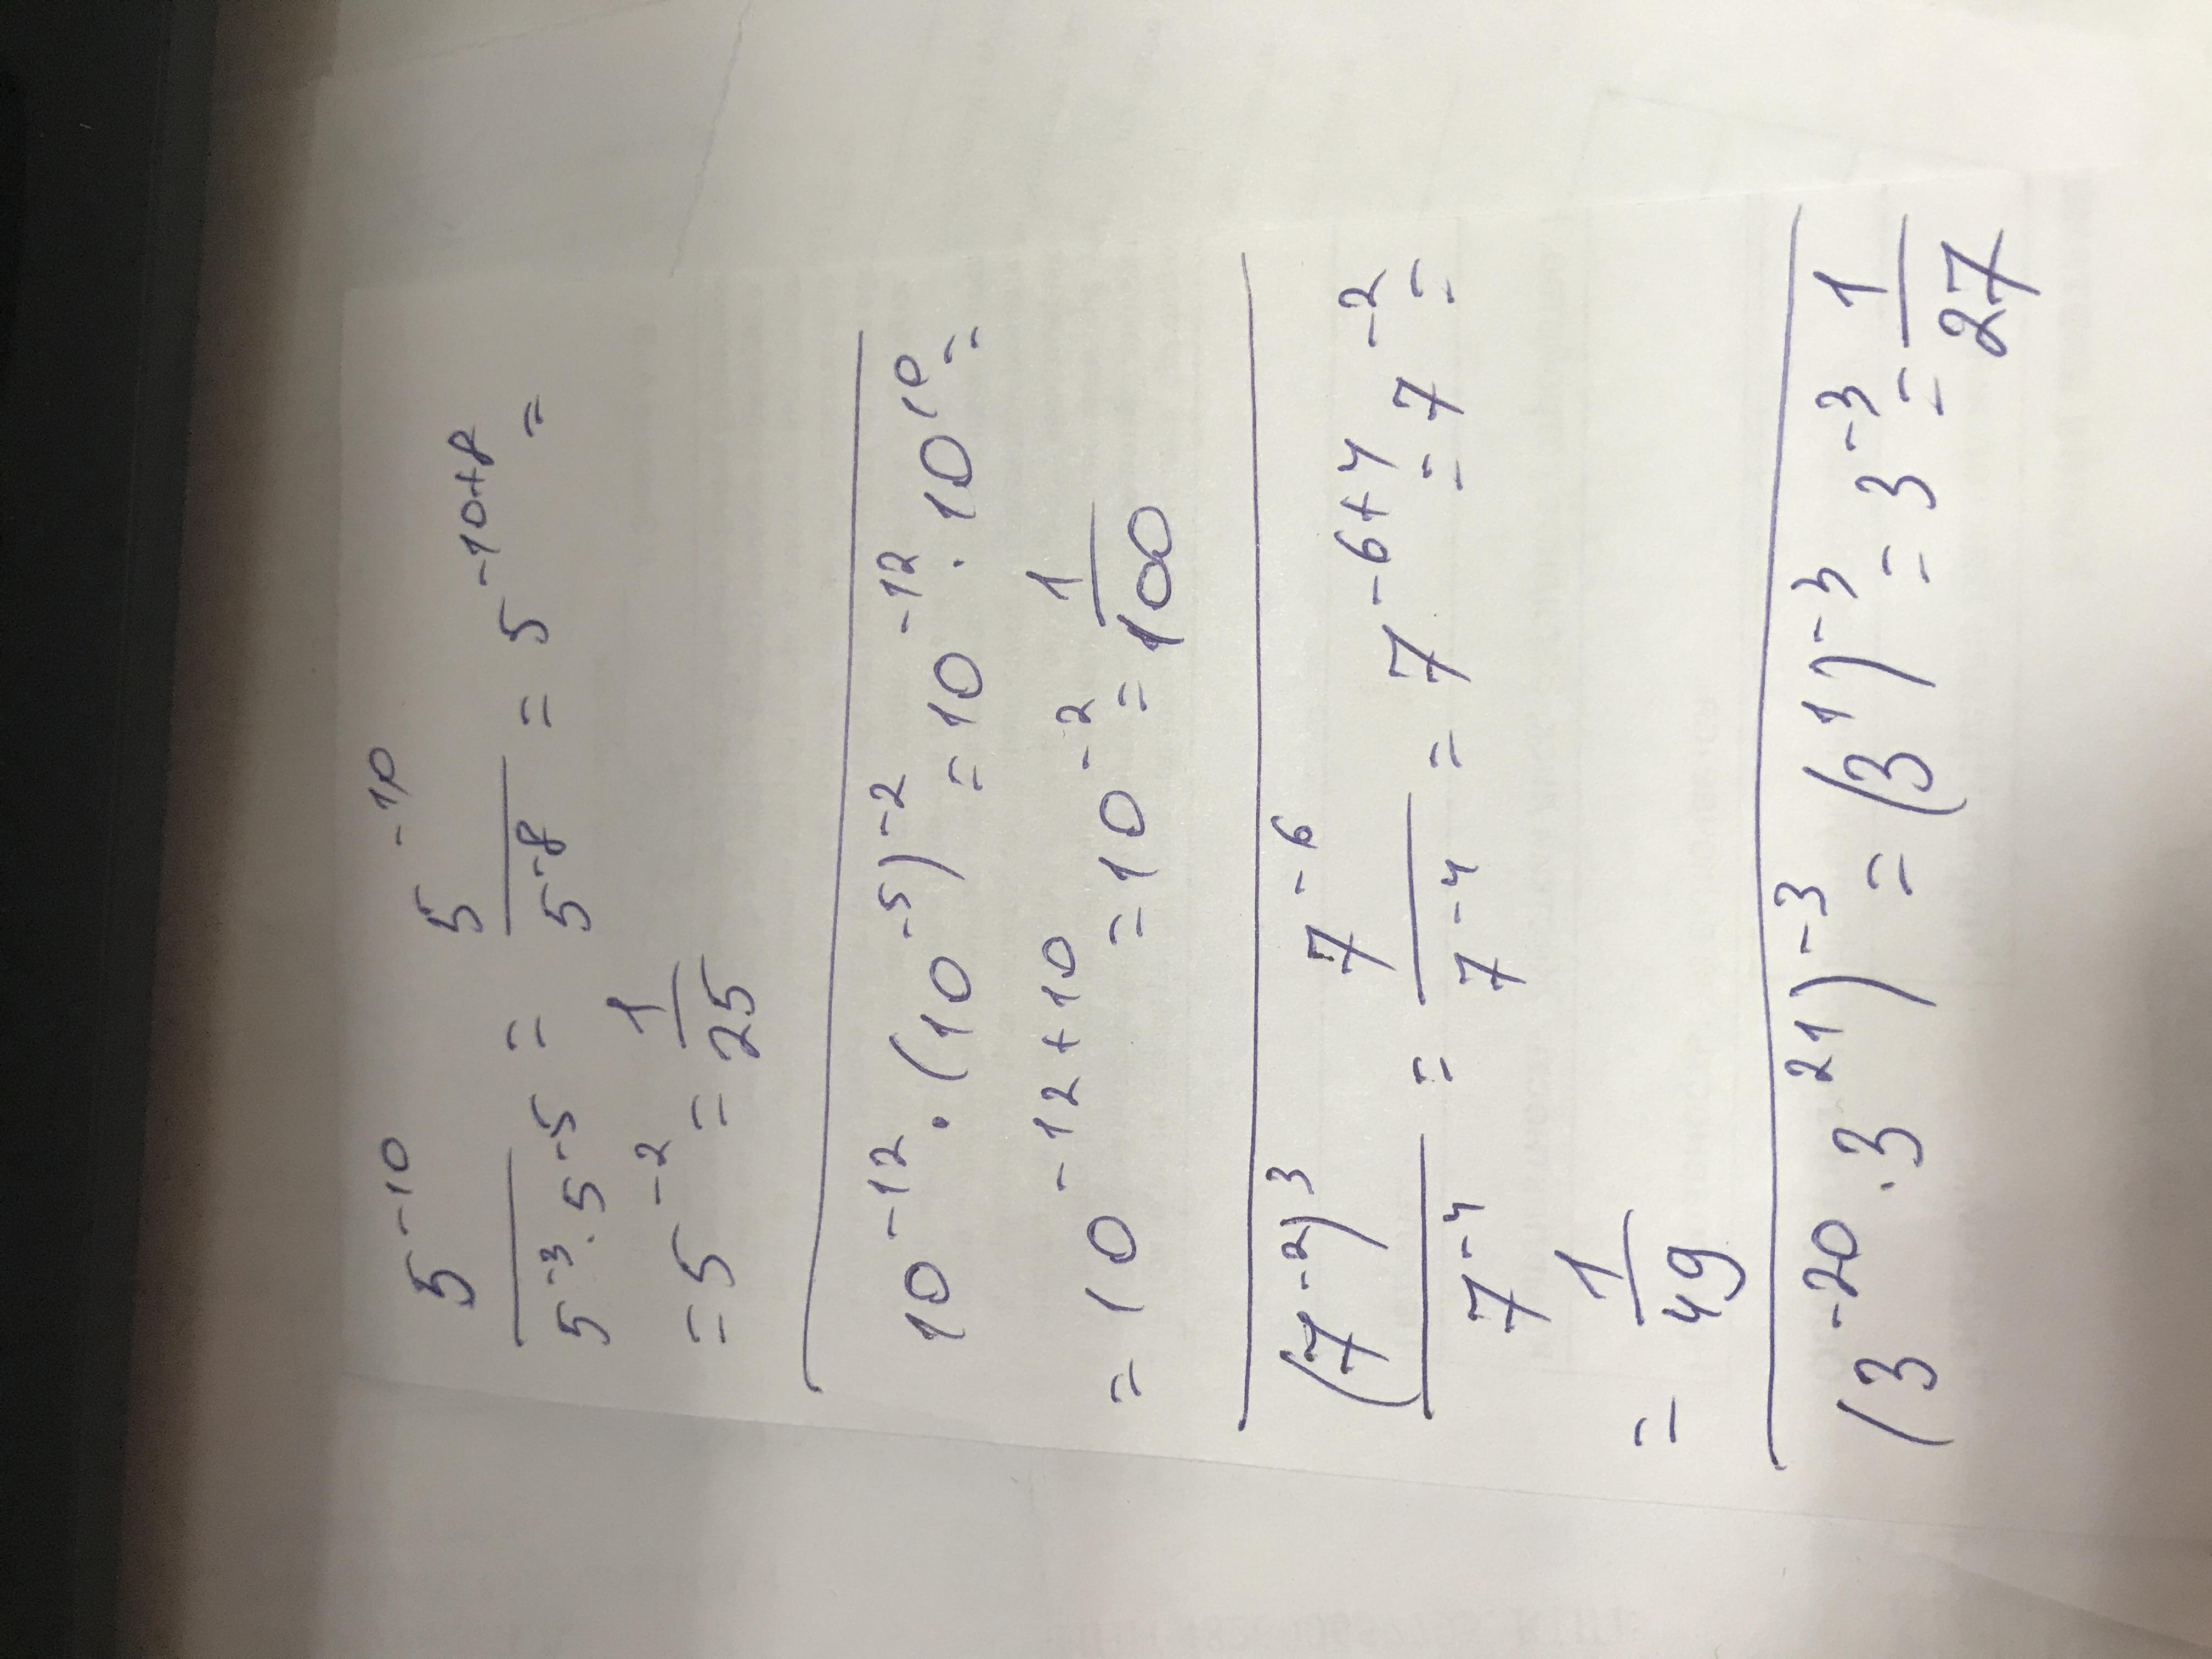 5^-10 / (5^-3 · 5^-5) = 5^-10 / 5^-8 = 5^-10+8 =
= 5^-2 = 1/25
10^-12 · (10^-5)^-2 = 10^-12 · 10^10 =
= 10^-12+10 = 10^-2 = 1/100
(7^-2)^3 / 7^-4 = 7^-6 / 7^-4 = 7^-6+4 = 7^-2 =
= 1/49
(3^-20 · 3^21)^-3 = (3^1)^-3 = 3^-3 = 1/27